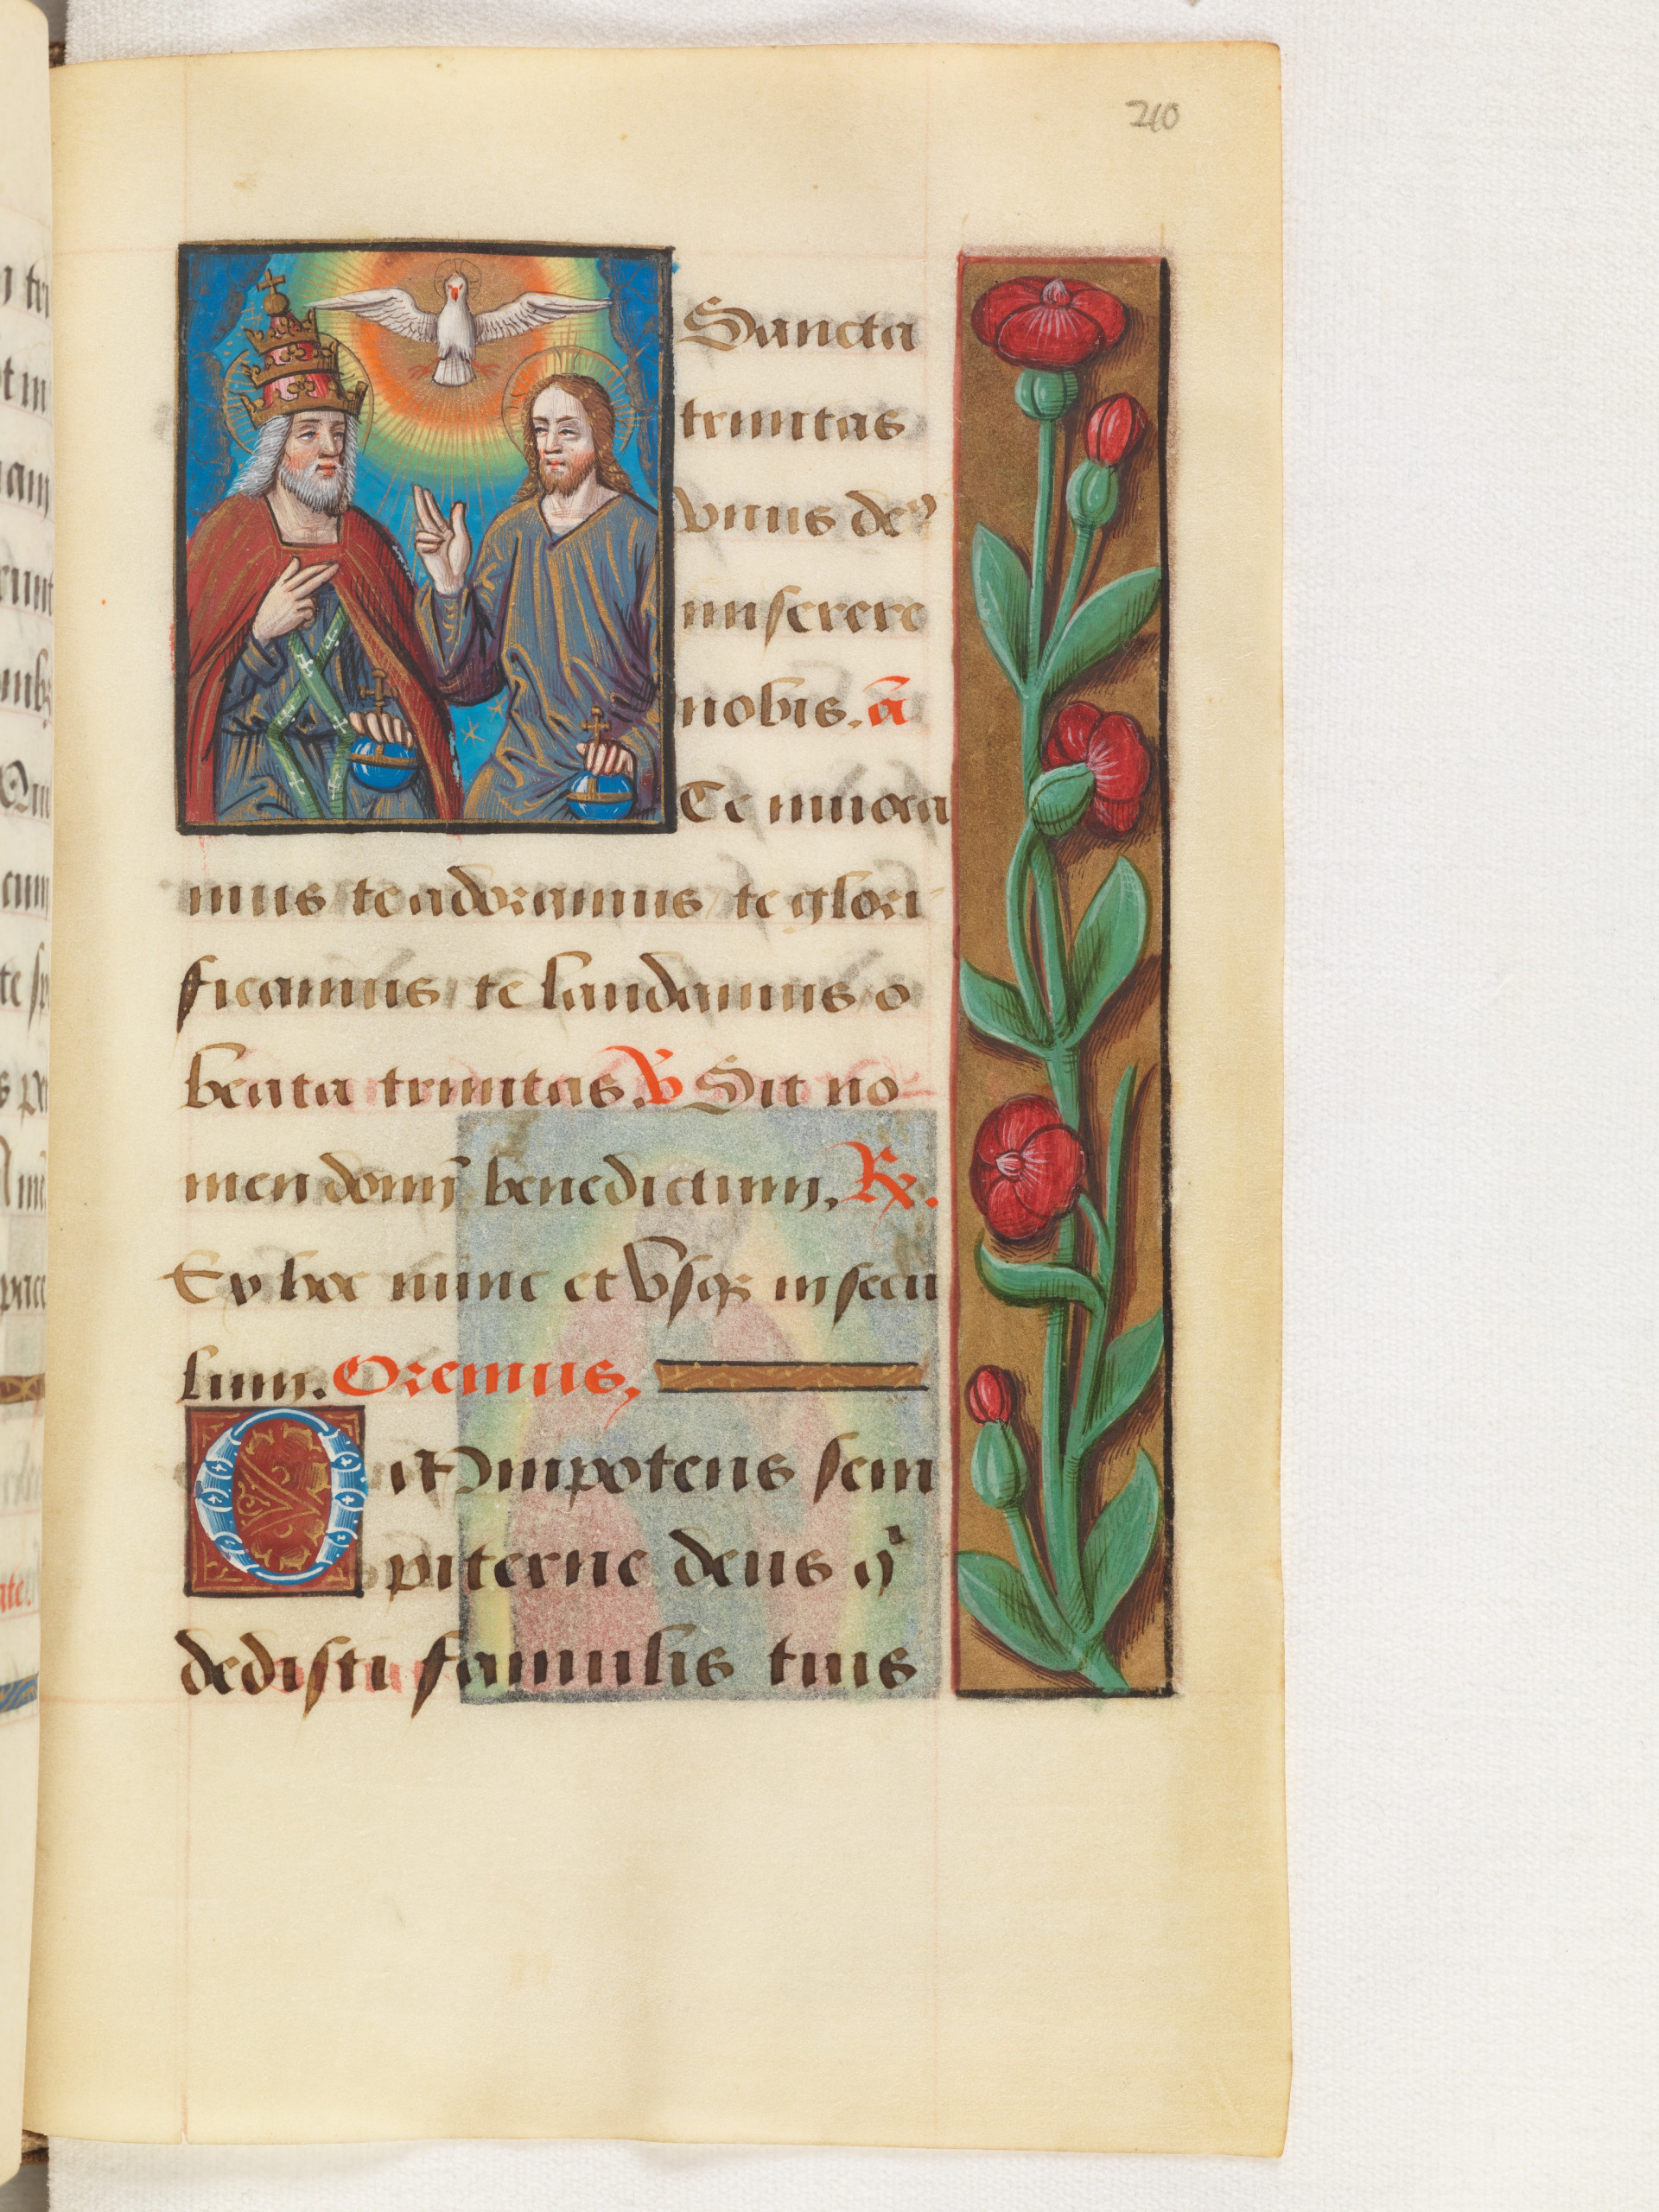 210
Sancta
trinitas
vnus de⁹
miserere
nobis. a᷑
Te inuoca
mus te adoramus te glori
ficamus te laudamus o
beata trinitas. ℣ Sit no
men domī benedictum. ℞.
Ex hoc nunc et vsqz in secu
lum. Oremus.
Omnipotens sem
piterne deus q̇
dedisti famulis tuis